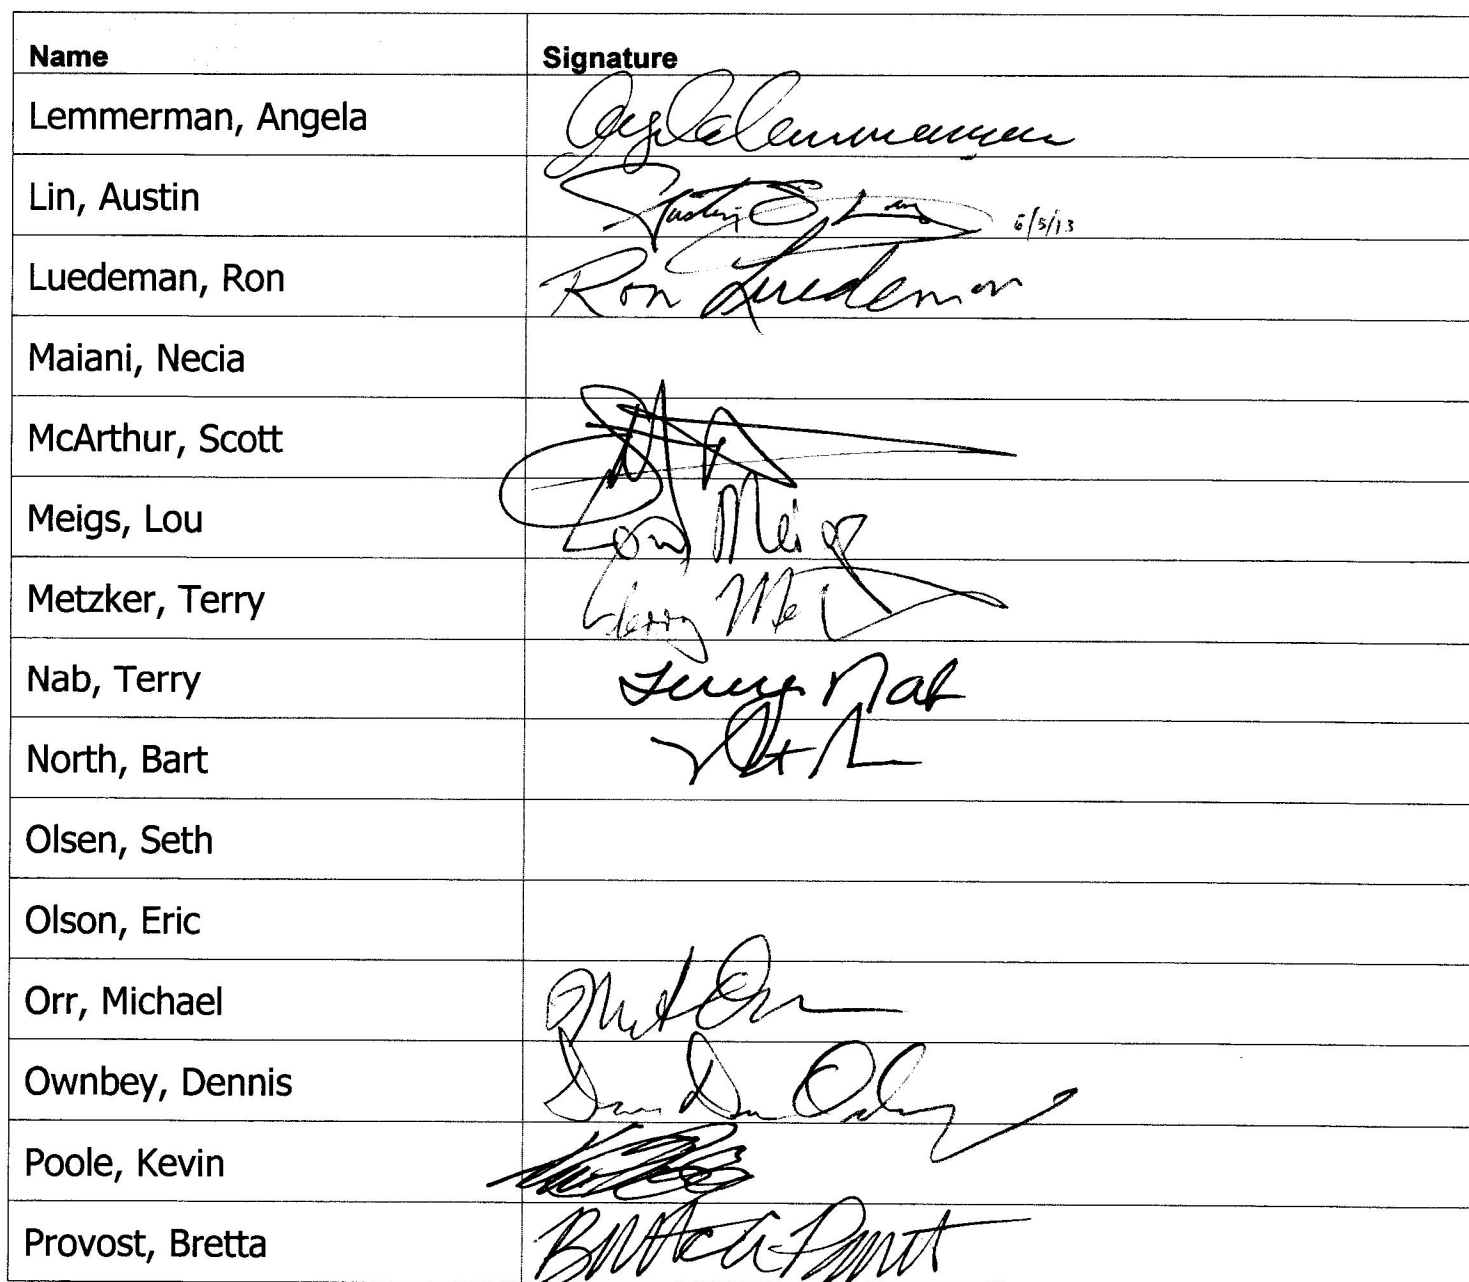 Name Signature
Lemmerman, Angela Angela Lemmerman
Lin, Austin Austin Lin 6/5/13
Luedeman, Ron Ron Luedeman
Maiani, Necia
McArthur, Scott
Meigs, Lou Lou Meigs
Metzker, Terry Terry
Nab, Terry Terry Nab
North, Bart
Olsen, Seth
Olson, Eric
Orr, Michael
Ownbey, Dennis
Poole, Kevin
Provost, Bretta